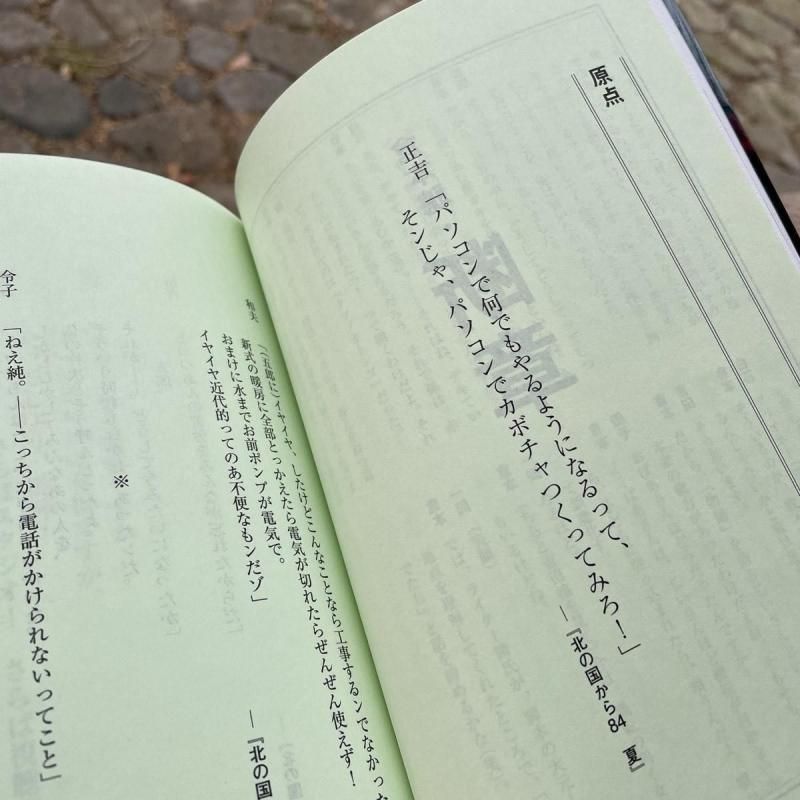 原点
正吉「パソコンで何でもやるようになるって、
そンじゃ、パソコンでカボチャつくってみろ!」
―『北の国から84 夏』
和夫「(五郎に)イヤイヤ、したけどこんなことなら工事するンでなかった
新式の暖房に全部とっかえたら電気が切れたらぜんぜん使えず!
おまけに水までお前ポンプが電気で。
イヤイヤ近代的ってのあ不便なもンだゾ」
―『北の国
※
令子「ねえ純。――こっちから電話がかけられないってこと」